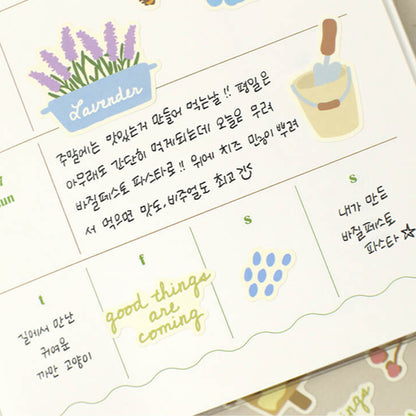 Lavender
주말에는 맛있는거 만들어 먹는날!! 평일은
아무래도 간단히 먹게되는데 오늘은 무려
바질페스토 파스타로!! 위에 치즈 많이 뿌려
서 먹으면 맛도, 비주얼도 최고
7
sun
t
f
s
s
길에서 만난
귀여운
까만 고양이
good things
are
coming
내가 만든
바질페스토
파스타